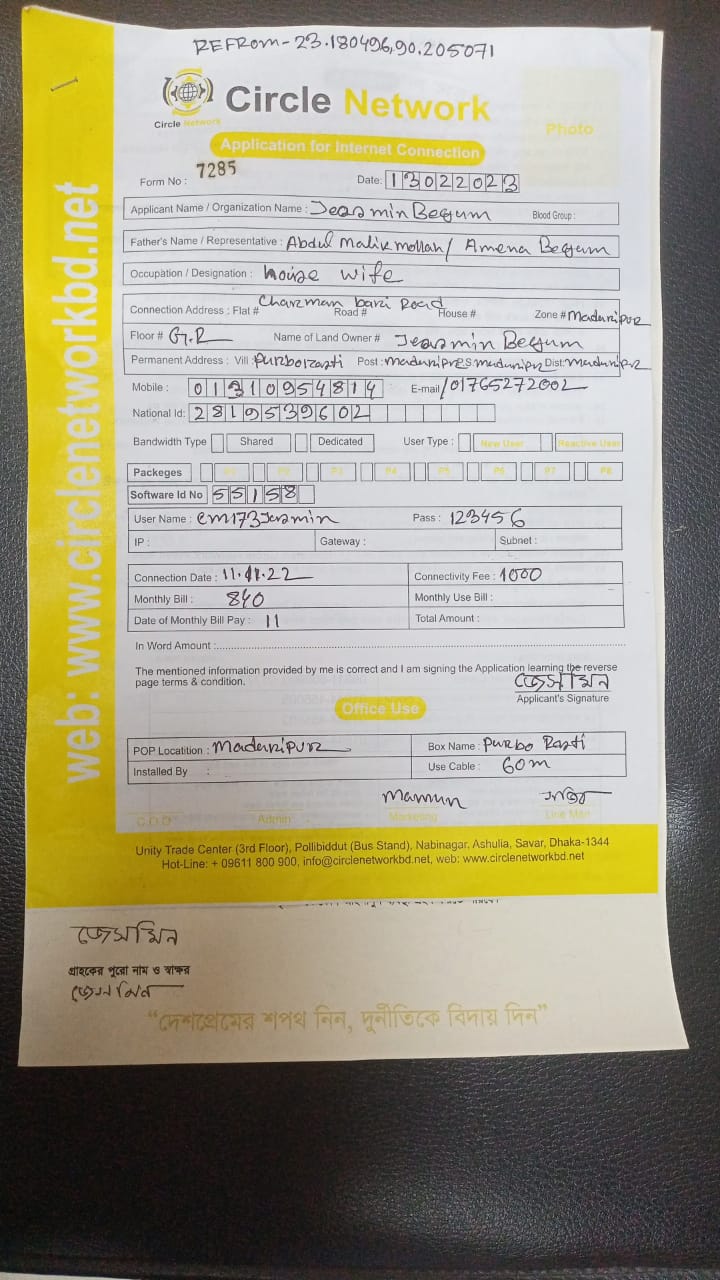 REFROM-23.180496,90.205071
Circle Network
Circle Network
Photo
Application for Internet Connection
Form No : 7285 Date: 13022023
Applicant Name / Organization Name : Jeasmin Begum Blood Group :
Father's Name / Representative : Abdul Malik mollah/ Amena Begum
Occupation / Designation : house wife
Connection Address : Flat # Charman bari Road Road # House # Zone # Madaripur
Floor # G.R Name of Land Owner # Jeasmin Begum
Permanent Address : Vill : Purborasti Post : madaripur P.S madaripur Dist: madaripur
Mobile : 01310954814 E-mail /01765272002
National Id: 2819539602
Bandwidth Type Shared Dedicated User Type : New User Reactive User
Packeges P1 P2 P3 P4 P5 P6 P7 P8
Software Id No 55158
User Name : cm173Jesmin Pass : 123456
IP : Gateway : Subnet :
Connection Date : 11.11.22 Connectivity Fee : 1000
Monthly Bill : 840 Monthly Use Bill :
Date of Monthly Bill Pay : 11 Total Amount :
In Word Amount :
The mentioned information provided by me is correct and I am signing the Application learning the reverse
page terms & condition.
জেসমিন
Applicant's Signature
Office Use
POP Locatition : Madaripur Box Name : Purbo Rasti
Installed By : Use Cable : 60m
Mamun
C.O.O Admin Marketing Line Man
Unity Trade Center (3rd Floor), Pollibiddut (Bus Stand), Nabinagar, Ashulia, Savar, Dhaka-1344
Hot-Line: + 09611 800 900, info@circlenetworkbd.net, web: www.circlenetworkbd.net
web: www.circlenetworkbd.net
জেসমিন
গ্রাহকের পুরো নাম ও স্বাক্ষর
জেসমিন
“দেশপ্রেমের শপথ নিন, দুর্নীতিকে বিদায় দিন”